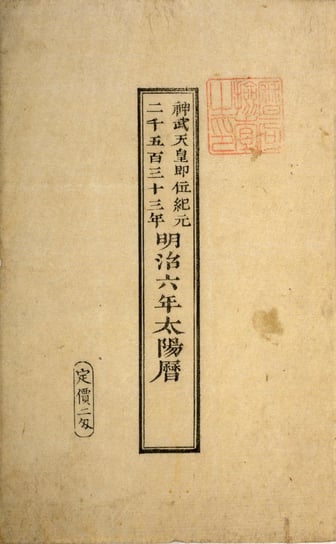 神武天皇即位紀元
二千五百三十三年
明治六年太陽暦
定價二匁